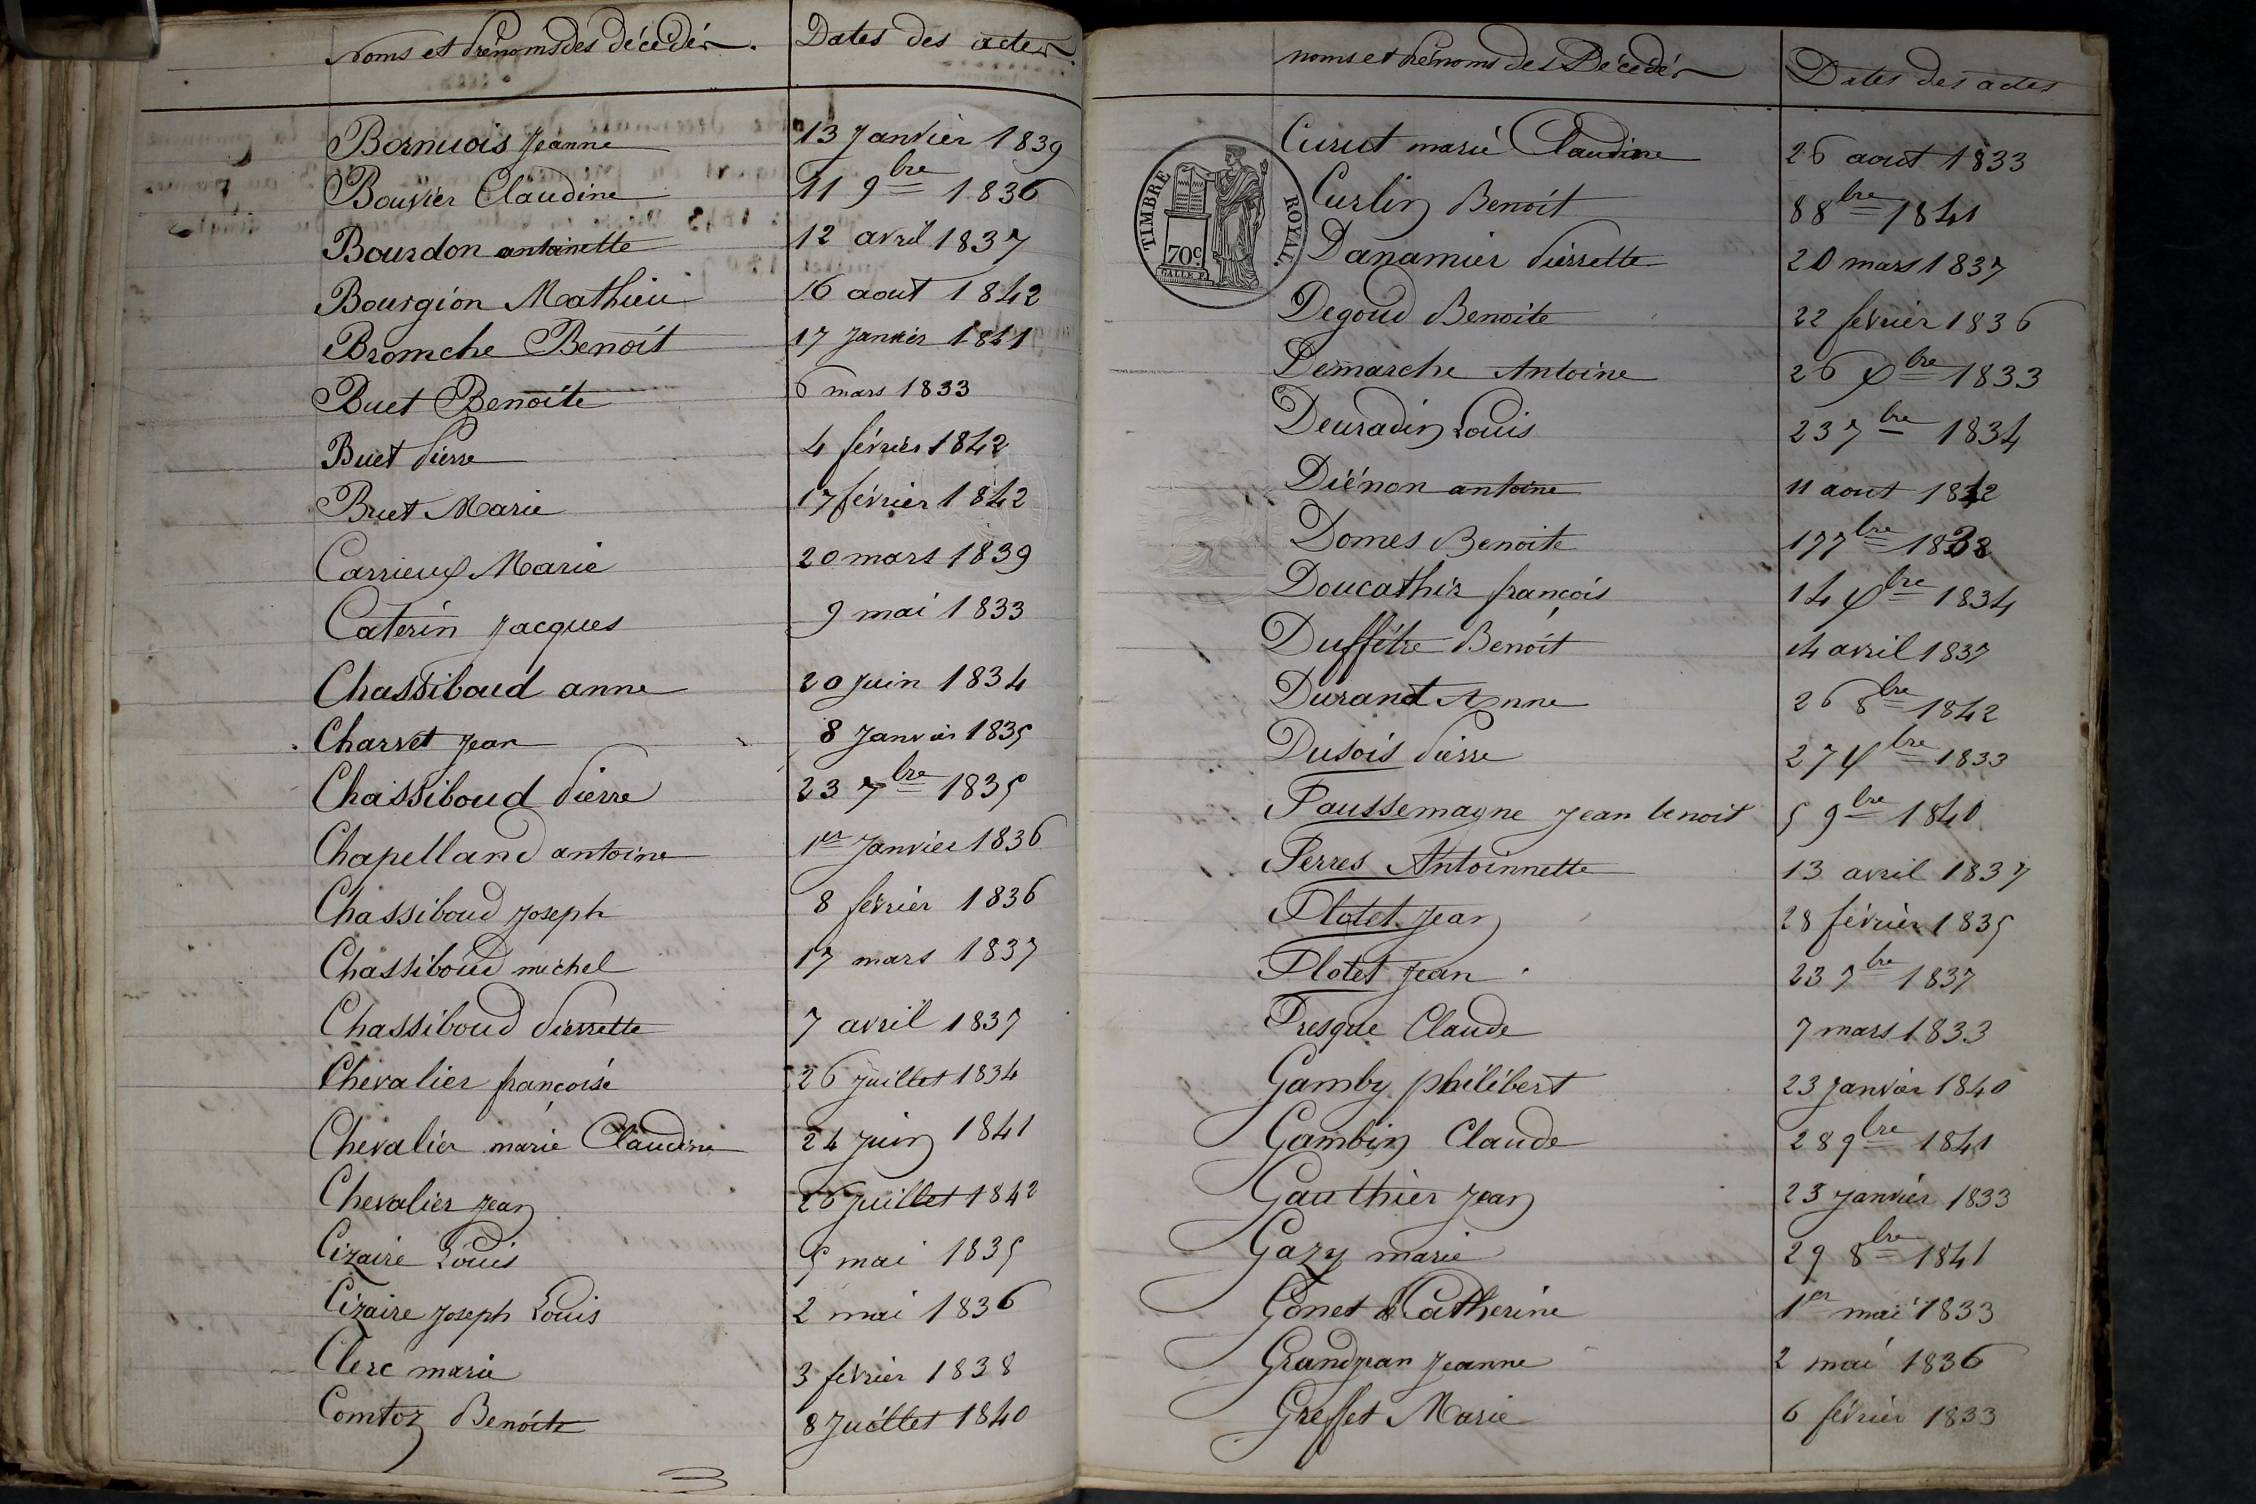 Noms et Prénoms des décédés. Dates des actes.
Bornuois Jeanne 13 Janvier 1839
Bouvier Claudine 11 9bre 1836
Bourdon antoinette 12 avril 1837
Bourgion Mathieu 16 aout 1842
Bromche Benoît 17 Janvier 1841
Buet Benoîte 6 mars 1833
Buet Pierre 4 février 1842
Bruet Marie 17 février 1842
Carrieux Marie 20 mars 1839
Caterin Jacques 9 mai 1833
Chassiboud anne 20 Juin 1834
Charvet Jean 8 Janvier 1835
Chassiboud Pierre 23 7bre 1835
Chapelland antoine 1er Janvier 1836
Chassiboud Joseph 8 février 1836
Chassiboud michel 17 mars 1837
Chassiboud Pierrette 7 avril 1837
Chevalier françoise 26 Juillet 1834
Chevalier marie Claudine 24 Juin 1841
Chevalier Jean 26 Juillet 1842
Cizaire Louis 5 mai 1835
Cizaire Joseph Louis 2 mai 1836
Clerc marie 3 février 1838
Comtoz Benoîte 8 Juillet 1840
noms et Prénoms des Décédés Dates des actes
TIMBRE ROYAL
70c.
Curut marie Claudine 26 aout 1833
Curlin Benoit 8 8bre 1841
Danamier Pierrette 20 mars 1837
Degoud Benoite 22 février 1836
Demarche Antoine 26 Xbre 1833
Deuradin Louis 23 7bre 1834
Diénon antoine 11 aout 1842
Domes Benoite 17 7bre 1838
Doucathir françois 14 Xbre 1834
Duffêtre Benoît 14 avril 1837
Durand Anne 26 8bre 1842
Dusois Pierre 27 Xbre 1833
Faussemagne Jean benoit 5 9bre 1840
Ferres Antoinnette 13 avril 1837
Flotet Jean 28 février 1835
Flotet Jean 23 7bre 1837
Fresque Claude 7 mars 1833
Gamby philébert 23 Janvier 1840
Gambin Claude 28 9bre 1841
Gauthier Jean 23 Janvier 1833
Gazy marie 29 8bre 1841
Gonet Catherine 1er mai 1833
Grandpan Jeanne 2 mai 1836
Greffet Marie 6 février 1833